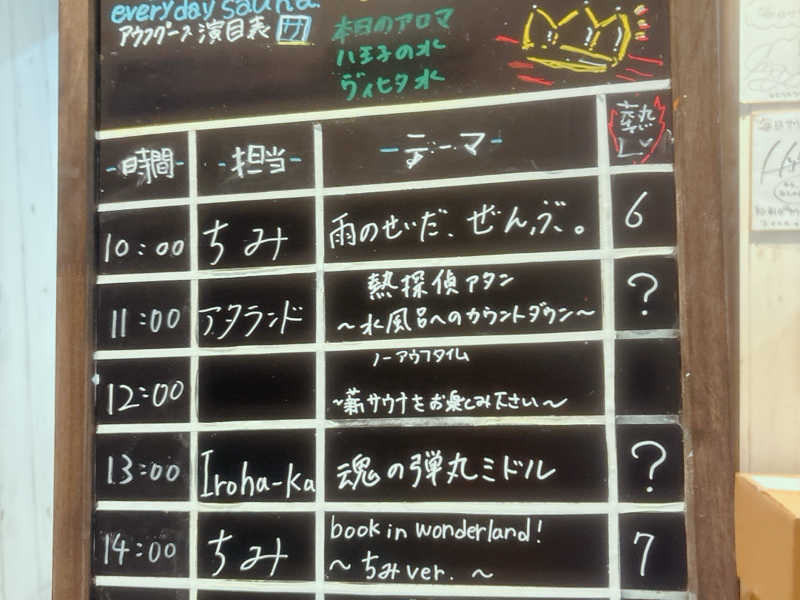 everyday sauna.
アウフグース演目表 サ
本日のアロマ
八王子の水
ヴィヒタ水
-時間- -担当- -テーマ- 熱Lv
10:00 ちみ 雨のせいだ、ぜんぶ。 6
11:00 アタランド 熱探偵アタン ?
〜水風呂へのカウントダウン〜
12:00 ノーアウフタイム
〜薪サウナをお楽しみ下さい〜
13:00 Iroha-ka 魂の弾丸ミドル ?
14:00 ちみ book in wonderland! 7
〜ちみver.〜